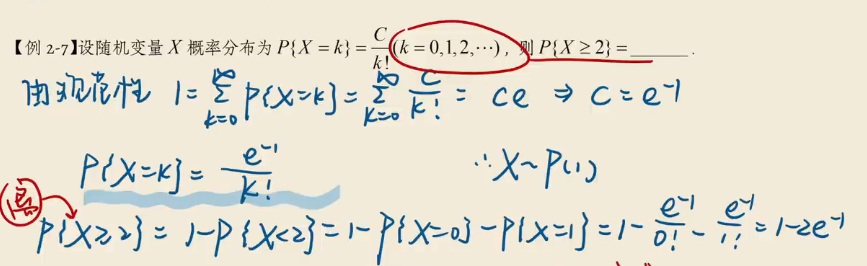 【例 2-7】设随机变量 X 概率分布为 P{X = k} = C/k! (k = 0,1,2,⋯)，则 P{X ≥ 2} = ______ .
由规范性 1 = ∑_{k=0}^{∞} P{X=k} = ∑_{k=0}^{∞} C/k! = ce ⇒ C = e⁻¹
P{X=k} = e⁻¹/k! ∴ X~P(1)
P{X≥2} = 1-P{X<2} = 1-P{X=0}-P{X=1} = 1- e⁻¹/0! - e⁻¹/1! = 1-2e⁻¹